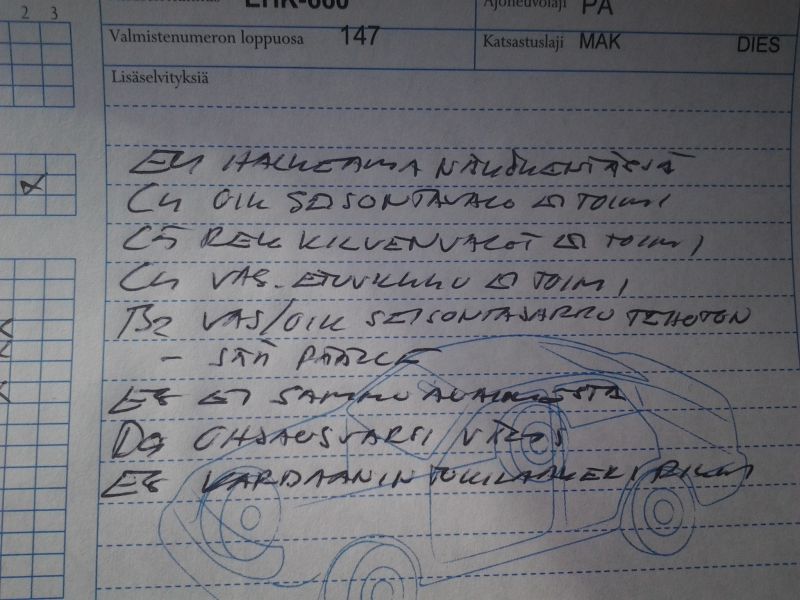 2 3
EHK-660
Ajoneuvolaji PA
Valmistenumeron loppuosa 147
Katsastuslaji MAK DIES
Lisäselvityksiä
E4 HALKEAMA NÄKÖKENTÄSSÄ
C4 OIK SEISONTAVALO EI TOIMI
C5 REK KILVENVALOT EI TOIMI
C4 VAS. ETUVILKKU EI TOIMI
B2 VAS/OIK SEISONTAJARRU TEHOTON
- JÄÄ PÄÄLLE
E8 EI SAMMU AVAIMESTA
OHJAUSVARSI VÄLYS
E8 KARDAANIN TUKILAAKERI RIKKI